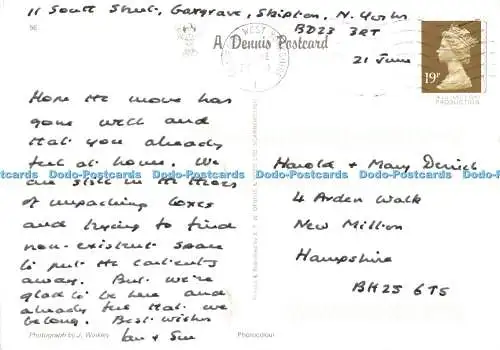 11 South Street, Gargrave, Skipton, N. Yorks
BD23 3RT
96
A Dennis Postcard
WEST YORKSHIRE
21 June
19P
PRODUCTION
Hope the move has
gone well and
that you already
feel at home. We
are still in the throes
of unpacking boxes
and trying to find
non-existent space
to put the contents
away. But we're
glad to be here and
already feel that we
belong. Best wishes
Ian + Sue
Harold + Mary
4 Arden Walk
New Million
Hampshire
BH25 6TS
Dodo-Postcards Dodo-Postcards Dodo-Postcards Dodo-Postcards Dodo-Postcards
Dodo-Postcards Dodo-Postcards Dodo-Postcards Dodo-Postcards
Photograph by J. Woolley
Photocolour